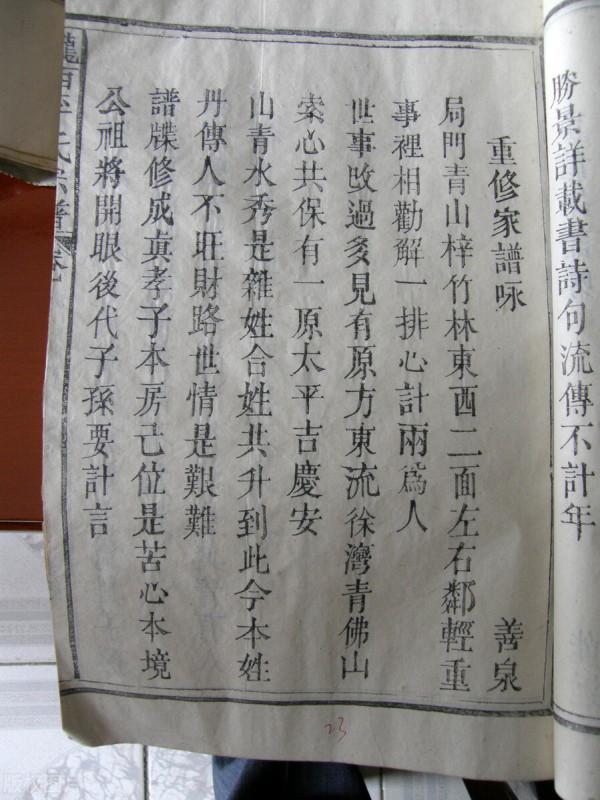 勝景詳載書詩句流傳不計年
重修家譜咏 善泉
局門青山梓竹林東西二面左右鄰輕重
事裡相勸解一排心計兩爲人
世事改過多見有原方東流徐灣青佛山
索心共保有一原太平吉慶安
山青水秀是雜姓合姓共升到此今本姓
丹傳人不旺財路世情是艱難
譜牒修成真孝子本房己位是苦心本境
公祖將開眼後代子孫要計言
氏宗譜卷
23
版权图